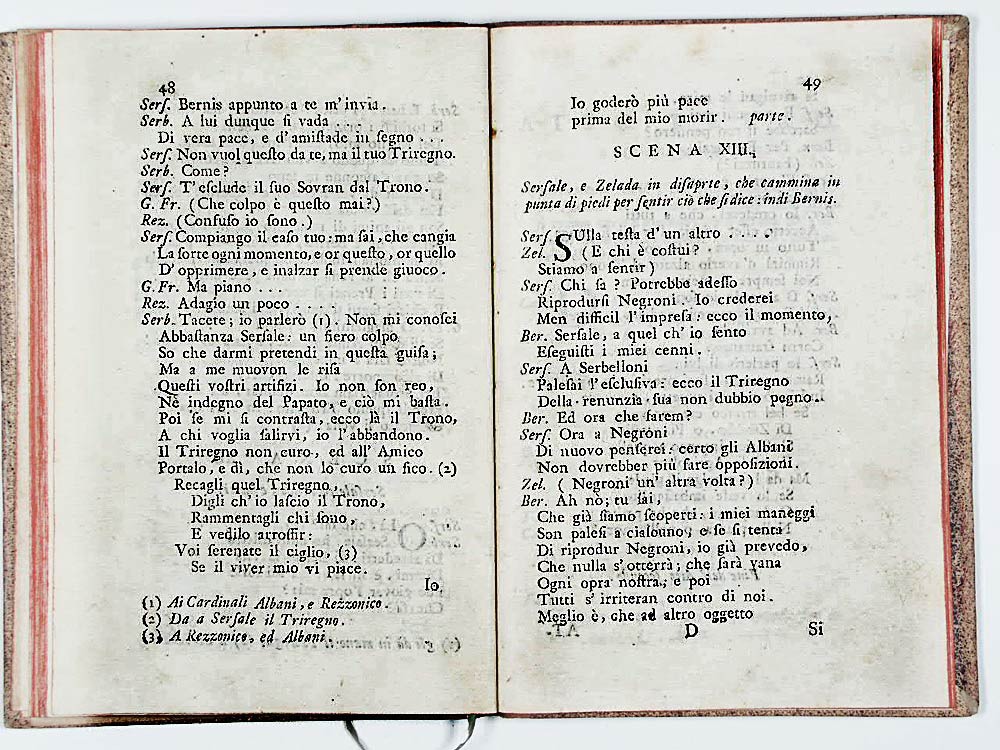 48
Serſ. Bernis appunto a te m'invia.
Serb. A lui dunque ſi vada . . .
Di vera pace, e d'amiſtade in ſegno . . .
Serſ. Non vuol queſto da te, ma il tuo Triregno.
Serb. Come?
Serſ. T'eſclude il ſuo Sovran dal Trono.
G. Fr. (Che colpo è queſto mai?)
Rez. (Confuſo io ſono.)
Serſ. Compiango il caſo tuo: ma ſai, che cangia
La ſorte ogni momento, e or queſto, or quello
D'opprimere, e inalzar ſi prende giuoco.
G. Fr. Ma piano . . .
Rez. Adagio un poco . . . .
Serb. Tacete; io parlerò (1). Non mi conoſci
Abbaſtanza Serſale: un fiero colpo
So che darmi pretendi in queſta guiſa;
Ma a me muovon le riſa
Queſti voſtri artifizi. Io non ſon reo,
Nè indegno del Papato, e ciò mi baſta.
Poi ſe mi ſi contraſta, ecco là il Trono,
A chi voglia ſalirvi, io l'abbandono.
Il Triregno non curo, ed all' Amico
Portalo, e dì, che non lo curo un fico. (2)
Recagli quel Triregno,
Digli ch'io laſcio il Trono,
Rammentagli chi ſono,
E vedilo arroſſir:
Voi ſerenate il ciglio, (3)
Se il viver mio vi piace.
Io
(1) Ai Cardinali Albani, e Rezzonico.
(2) Da a Serſale il Triregno.
(3) A Rezzonico, ed Albani.
49
Io goderò più pace
prima del mio morir. parte.
SCENA XIII.
Serſale, e Zelada in diſuprte, che cammina in
punta di piedi per ſentir ciò che ſi dice: indi Bernis.
Serſ. SUlla teſta d'un altro . . . .
Zel. (E chi è coſtui?
Stiamo a ſentir)
Serſ. Chi ſa? Potrebbe adeſſo
Riprodurſi Negroni. Io crederei
Men difficil l'impreſa: ecco il momento,
Ber. Serſale, a quel ch'io ſento
Eſeguiſti i miei cenni.
Serſ. A Serbelloni
Paleſai l'eſcluſiva: ecco il Triregno
Della renunzia ſua non dubbio pegno..
Ber. Ed ora che farem?
Serſ. Ora a Negroni
Di nuovo penſerei: certo gli Albani
Non dovrebber più fare oppoſizioni.
Zel. ( Negroni un' altra volta?)
Ber. Ah nò; tu ſai,
Che già ſiamo ſcoperti: i miei maneggi
Son paleſi a ciaſcuno, e ſe ſi tenta
Di riprodur Negroni, io già prevedo,
Che nulla s'otterrà; che ſarà vana
Ogni opra noſtra, e poi
Tutti s'irriteran contro di noi.
Meglio è, che ad altro oggetto
D
Si